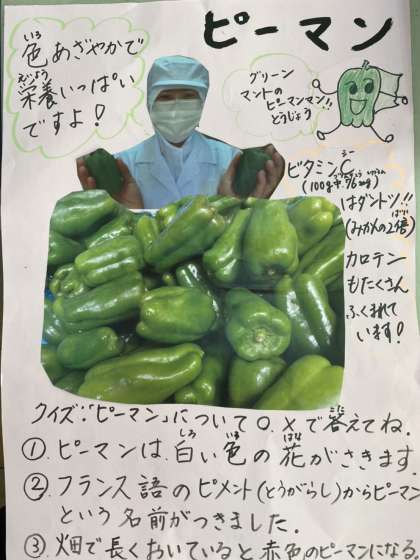 ピーマン
色あざやかで
栄養いっぱい
ですよ!
グリーン
マントの
ピーマンマン!!
とうじょう
ビタミンC
(100g中76mg)
はダントツ!!
(みかんの2倍)
カロテン
もたくさん
ふくまれて
います!
クイズ:「ピーマン」について○、×で答えてね.
①.ピーマンは、白い色の花がさきます
②.フランス語のピメント(とうがらし)からピーマン
という名前がつきました.
③.畑で長くおいていると赤色のピーマンになる